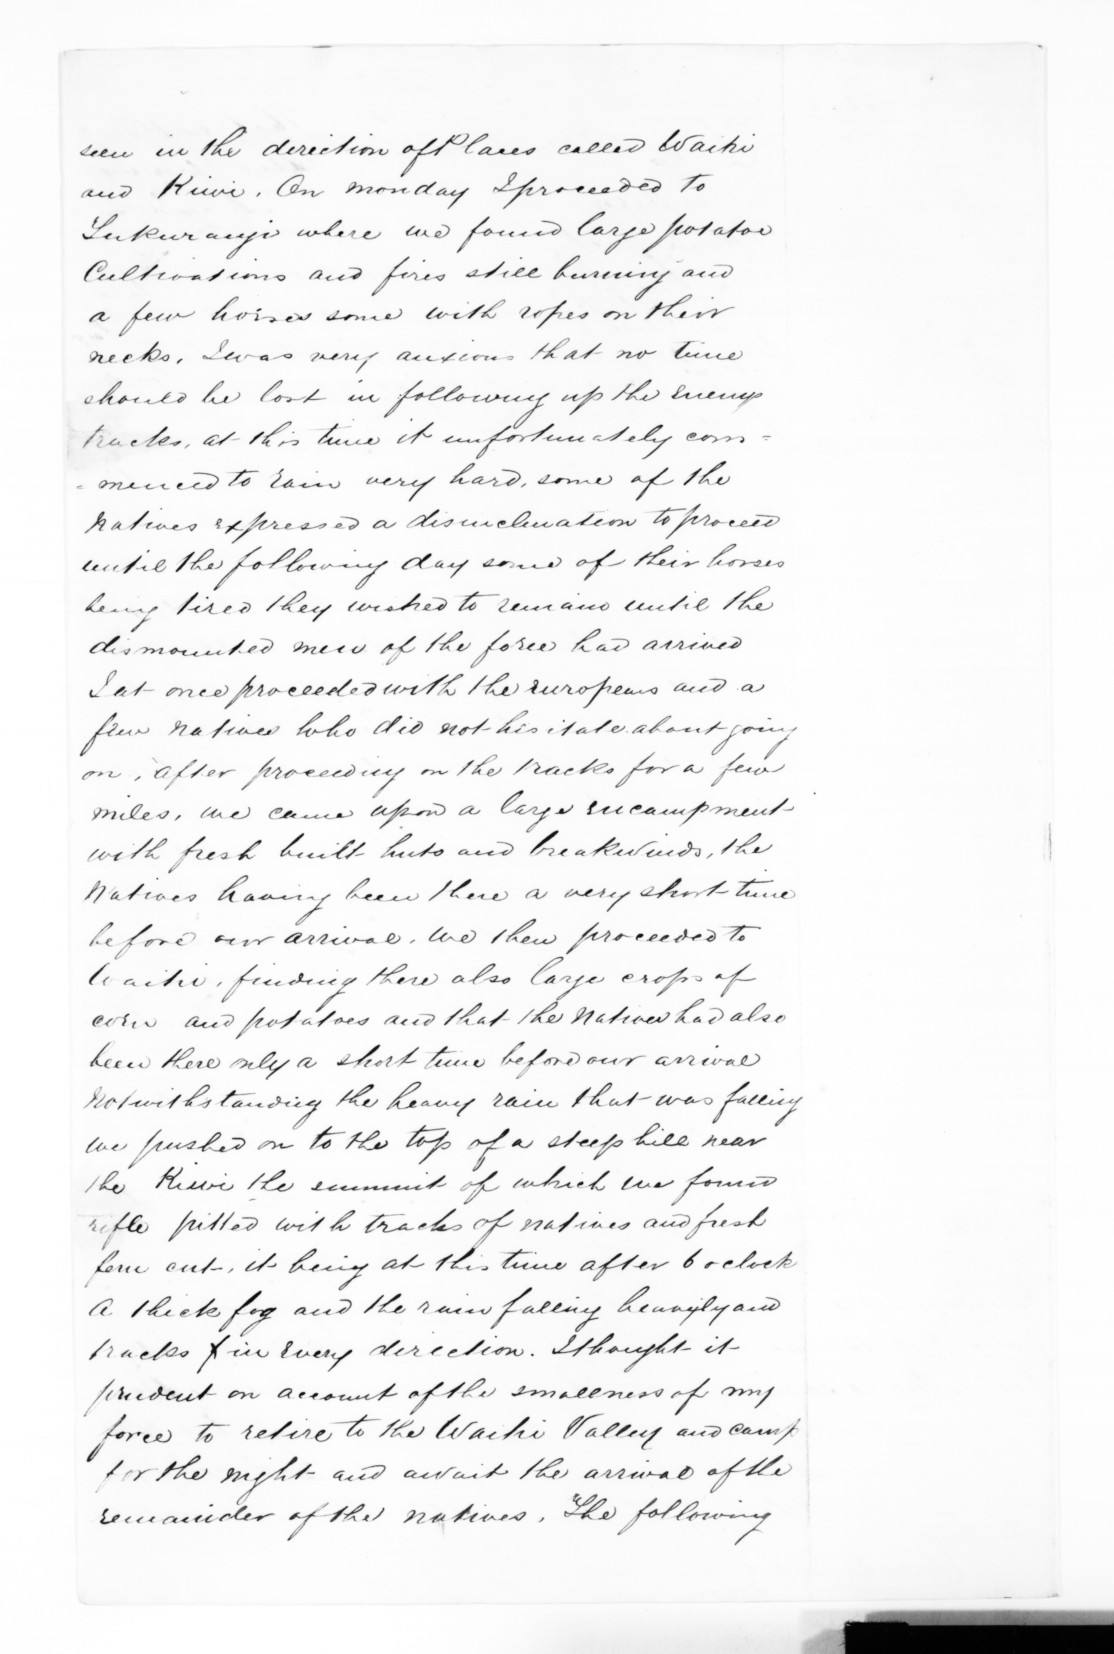 seen in the direction of Places called Waihi
and Kiwi. On monday I proceeded to
Tukurangi where we found large potatoe
Cultivations and fires still burning and
a few horses some with ropes on their
necks, I was very anxious that no time
should be lost in following up the Enemys
tracks, at this time it unfortunately com=
=menced to rain very hard, some of the
Natives expressed a disinclination to proceed
until the following day some of their horses
being tired they wished to remain until the
dismounted men of the force had arrived
I at once proceeded with the Europeans and a
few Natives who did not hesitate about going
on, after proceeding on the tracks for a few
miles, we came upon a large Encampment
with fresh built huts and breakwinds, the
Natives having been there a very short time
before our arrival. We then proceeded to
Waihi, finding there also large crops of
corn and potatoes and that the Natives had also
been there only a short time before our arrival
Notwithstanding the heavy rain that was falling
we pushed on to the top of a steep hill near
the Kiwi the summit of which we found
rifle pitted with tracks of natives and fresh
fern cut, it being at this time after 6 oclock
a thick fog and the rain falling heavily and
tracks in Every direction. I thought it
prudent on account of the smallness of my
force to retire to the Waihi Valley and camp
for the night and await the arrival of the
remainder of the natives. The following